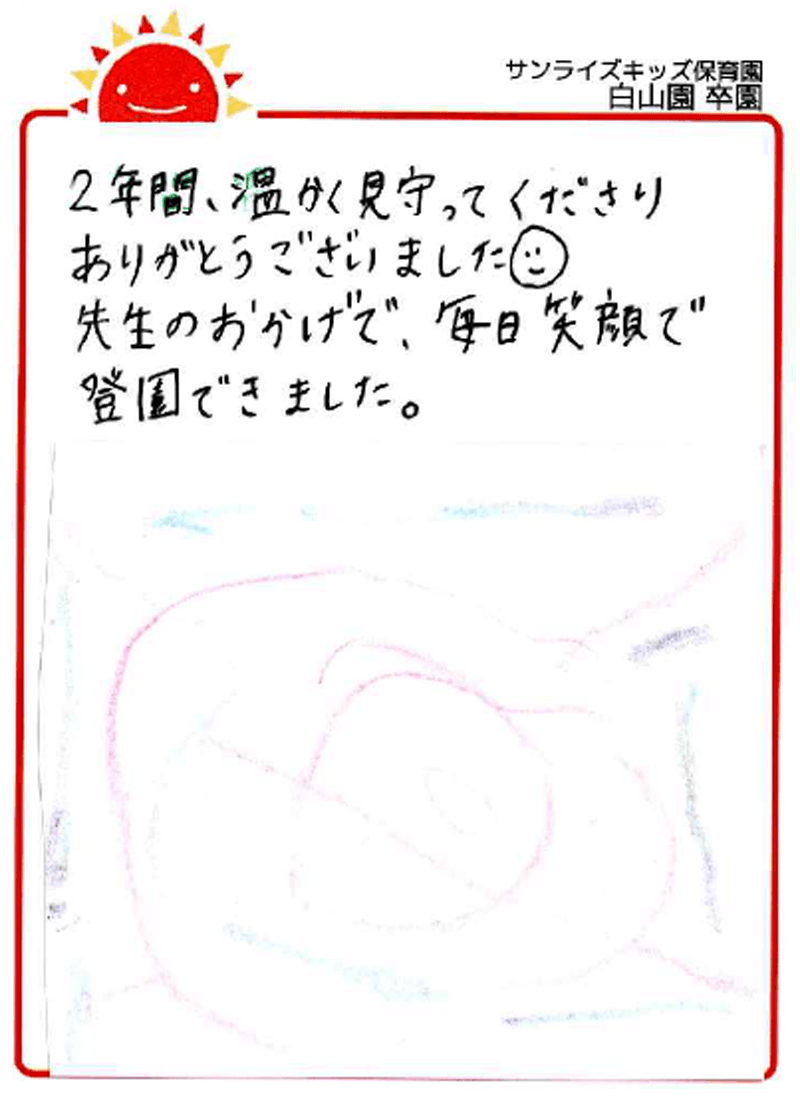 サンライズキッズ保育園
白山園 卒園
2年間、温かく見守ってくださり
ありがとうございました
先生のおかげで、毎日笑顔で
登園できました。